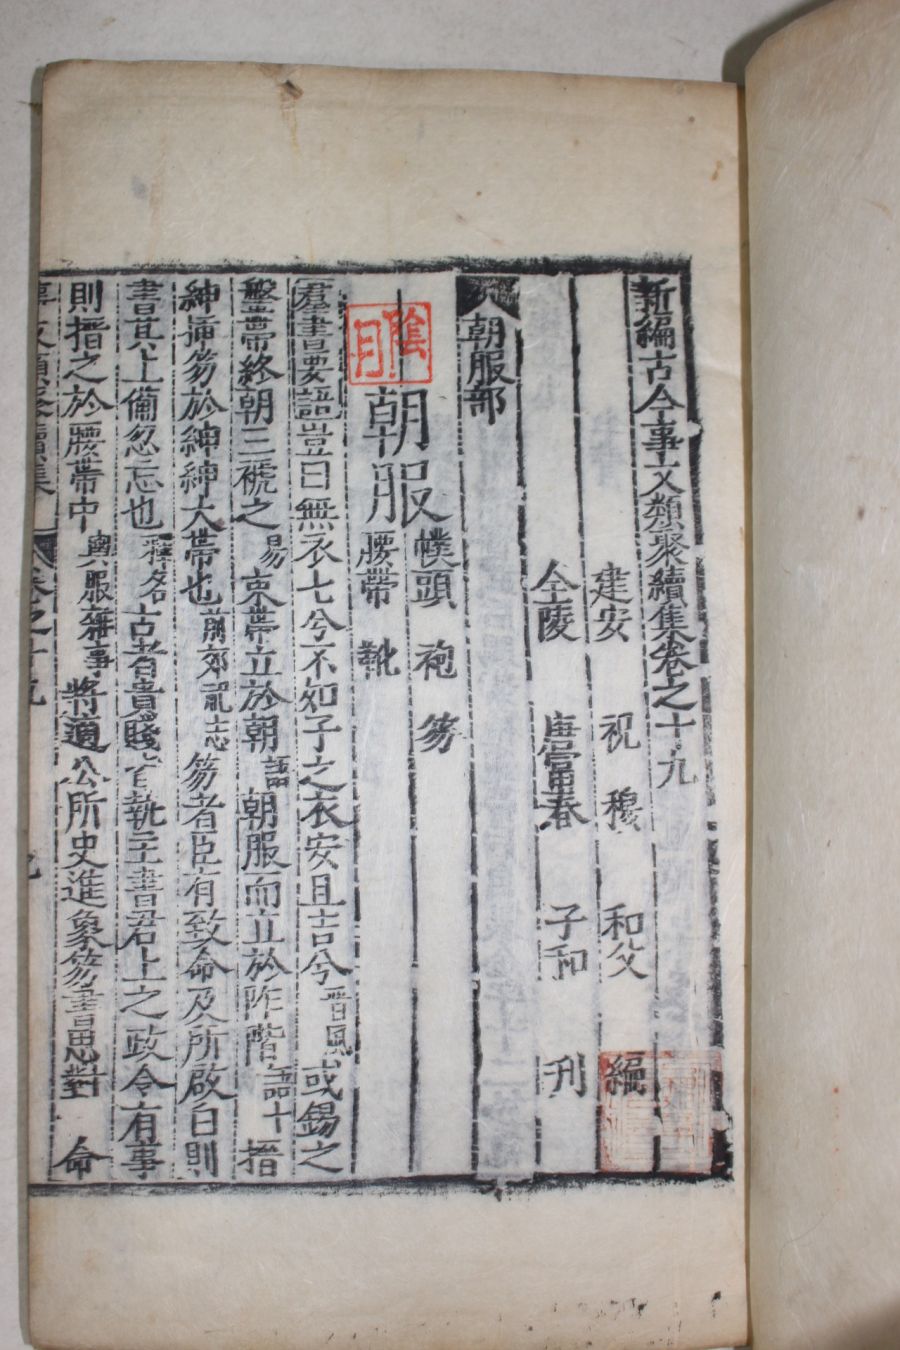 新編古今事文類聚續集卷之十九
建安 祝 穆 和父 編
金陵 唐富春 子和 刊
朝服部
朝服
幞頭 袍 笏
腰帶 靴
群書要語豈曰無衣七兮不如子之衣安且吉兮晋風或錫之
鞶帶終朝三褫之易束帶立於朝語朝服而立於阼階語十搢
紳搢笏於紳紳大帶也前郊祀志笏者臣有致命及所啟白則
書其上備忽忘也釋名古者貴賤皆執笏書君上之政令有事
則搢之於腰帶中輿服雜事將適公所史進象笏書思對 命
事文類聚續集 卷之十九